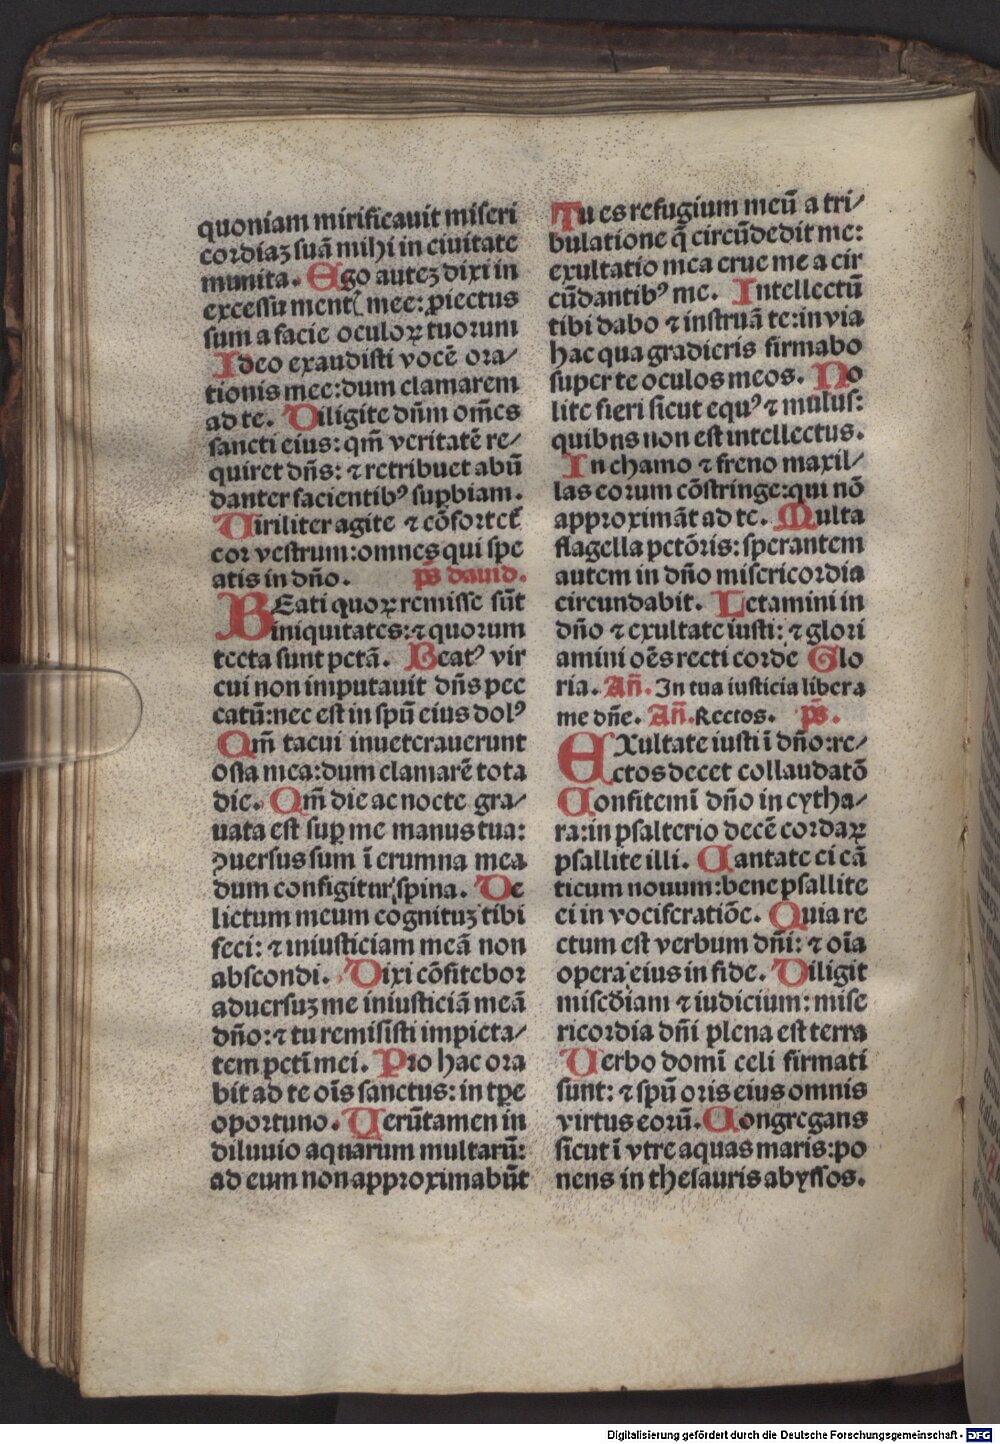 quoniam mirificauit miseri
cordiaʒ suā mihi in ciuitate
munita. Ego auteʒ dixi in
excessu mentꝭ mee: ꝓiectus
sum a facie oculoꝝ tuorum
Ideo exaudisti vocē ora/
tionis mee: dum clamarem
ad te. Diligite dn̄m om̄es
sancti eius: qm̄ veritatē re/
quiret dn̄s: ⁊ retribuet abū
danter facientibꝰ suꝑbiam.
Uiriliter agite ⁊ cōfortet̄
cor vestrum: omnes qui spe
atis in dn̄o. ps̄ dauid.
BEati quoꝝ remisse sūt
iniquitates: ⁊ quorum
tecta sunt pctā. Beatꝰ vir
cui non imputauit dn̄s pec
catū: nec est in spū eius dolꝰ
Qm̄ tacui inueterauerunt
ossa mea: dum clamarē tota
die. Qm̄ die ac nocte gra/
uata est suꝑ me manus tua:
ꝯuersus sum ī erumna mea
dum configitur spina. De
lictum meum cognituʒ tibi
feci: ⁊ iniusticiam meā non
abscondi. Dixi cōfitebor
aduersuʒ me iniusticiā meā
dn̄o: ⁊ tu remisisti impieta/
tem pctī mei. Pro hac ora
bit ad te oīs sanctus: in tꝑe
oportuno. Uerūtamen in
diluuio aquarum multarū:
ad eum non approximabūt
Tu es refugium meū a tri/
bulatione q̄ circūdedit me:
exultatio mea erue me a cir
cūdantibꝰ me. Intellectū
tibi dabo ⁊ instruā te: in via
hac qua gradieris firmabo
super te oculos meos. No
lite fieri sicut equꝰ ⁊ mulus:
quibus non est intellectus.
In chamo ⁊ freno maxil/
las eorum cōstringe: qui nō
approximāt ad te. Multa
flagella pctōris: sperantem
autem in dn̄o misericordia
circundabit. Letamini in
dn̄o ⁊ exultate iusti: ⁊ glori
amini oēs recti corde Glo
ria. Añ. In tua iusticia libera
me dn̄e. Añ. Rectos. ps̄.
EXultate iusti ī dn̄o: re/
ctos decet collaudatō
Confitemī dn̄o in cytha/
ra: in psalterio decē cordaꝝ
psallite illi. Cantate ei cā
ticum nouum: bene psallite
ei in vociferatiōe. Quia re
ctum est verbum dn̄i: ⁊ oīa
opera eius in fide. Diligit
misc̄diam ⁊ iudicium: mise
ricordia dn̄i plena est terra
Uerbo domī celi firmati
sunt: ⁊ spū oris eius omnis
virtus eorū. Congregans
sicut ī vtre aquas maris: po
nens in thesauris abyssos.
Digitalisierung gefördert durch die Deutsche Forschungsgemeinschaft - DFG